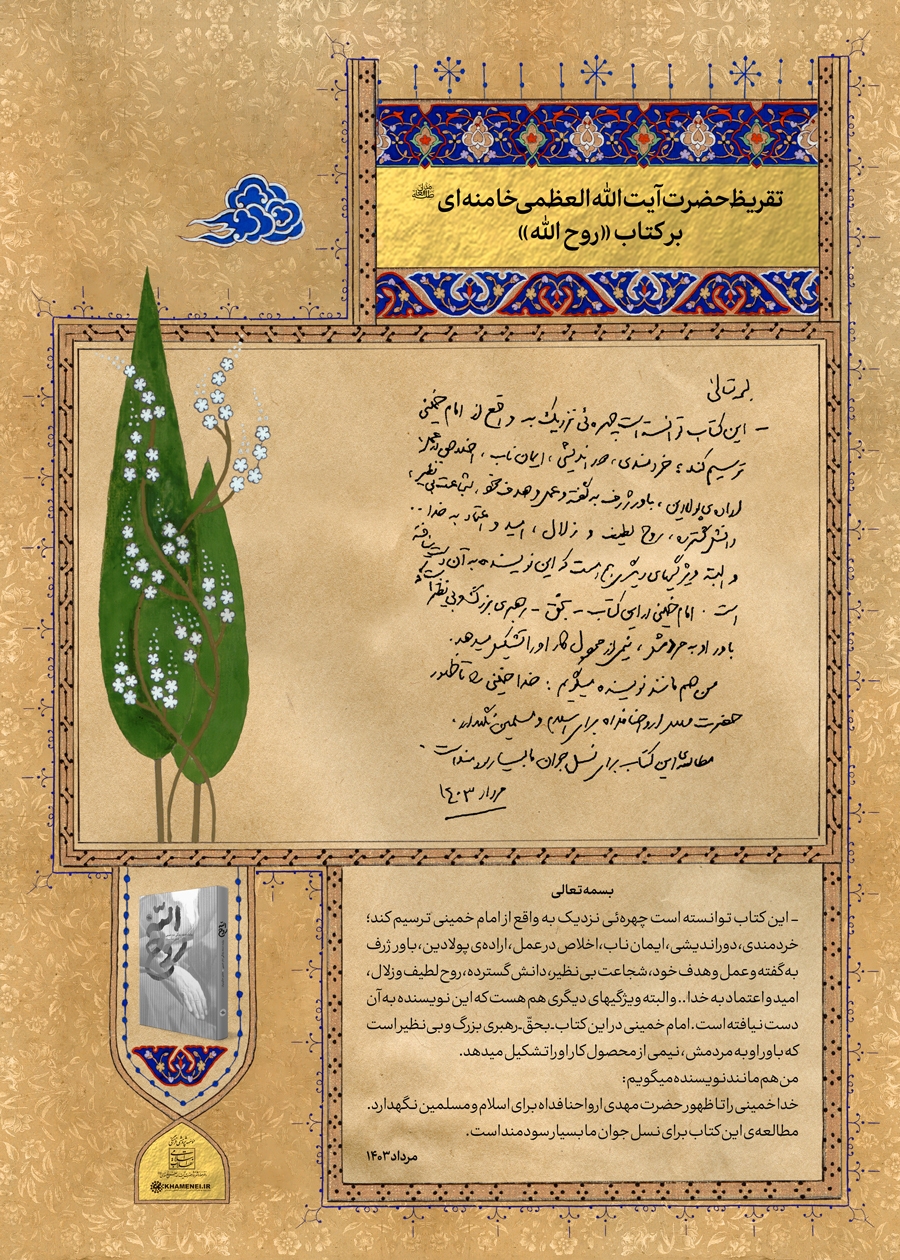 تقریظ حضرت آیت الله العظمی خامنه ای
بر کتاب ((روح الله))
بسمه تعالی
- این کتاب توانسته است چهره‌ئی نزدیک به واقع از امام خمینی
ترسیم کند؛ خردمندی، دوراندیشی، ایمان ناب، اخلاص در عمل،
اراده‌ی پولادین، باور ژرف به گفته و عمل و هدف خود، شجاعت بی نظیر،
دانش گسترده، روح لطیف و زلال، امید و اعتماد به خدا . .
و البته ویژگیهای دیگری هم هست که این نویسنده به آن دست نیافته
است. امام خمینی در این کتاب - بحق - رهبری بزرگ و بی نظیر است که
باور او به مردمش، نیمی از محصول کار او را تشکیل میدهد.
من هم مانند نویسنده میگویم: خدا خمینی را تا ظهور
حضرت مهدی ارواحنا فداه برای اسلام و مسلمین نگهدارد.
مطالعه‌ی این کتاب برای نسل جوان ما بسیار سودمند است.
مرداد ۱۴۰۳
بسمه تعالی
- این کتاب توانسته است چهره‌ئی نزدیک به واقع از امام خمینی ترسیم کند؛
خردمندی، دوراندیشی، ایمان ناب، اخلاص در عمل، اراده‌ی پولادین، باور ژرف
به گفته و عمل و هدف خود، شجاعت بی نظیر، دانش گسترده، روح لطیف و زلال،
امید و اعتماد به خدا.. و البته ویژگیهای دیگری هم هست که این نویسنده به آن
دست نیافته است. امام خمینی در این کتاب ـ بحقّ ـ رهبری بزرگ و بی نظیر است
که باور او به مردمش، نیمی از محصول کار او را تشکیل میدهد.
من هم مانند نویسنده میگویم:
خدا خمینی را تا ظهور حضرت مهدی ارواحنا فداه برای اسلام و مسلمین نگهدارد.
مطالعه‌ی این کتاب برای نسل جوان ما بسیار سودمند است.
مرداد ۱۴۰۳
روح
الله
KHAMENEI.IR